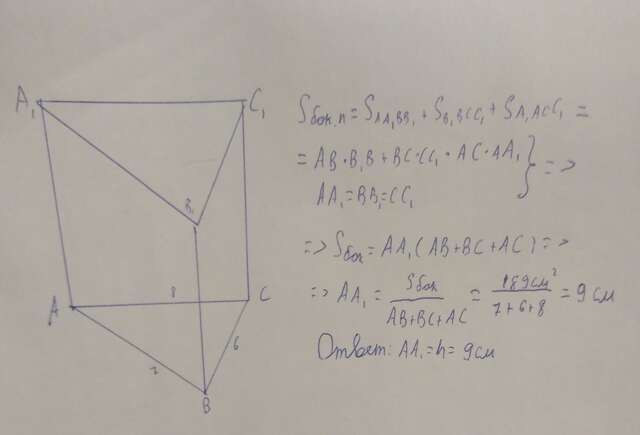 A₁
C₁
B₁
8
A
C
7
6
B
Sбок.п = SAA₁BB₁ + SB₁BCC₁ + SA₁ACC₁ =
= AB · B₁B + BC · CC₁ · AC · AA₁ } =>
AA₁ = BB₁ = CC₁
=> Sбок = AA₁ (AB + BC + AC) =>
=> AA₁ = Sбок / AB + BC + AC = 189 см² / 7 + 6 + 8 = 9 см
Ответ: AA₁ = h = 9 см